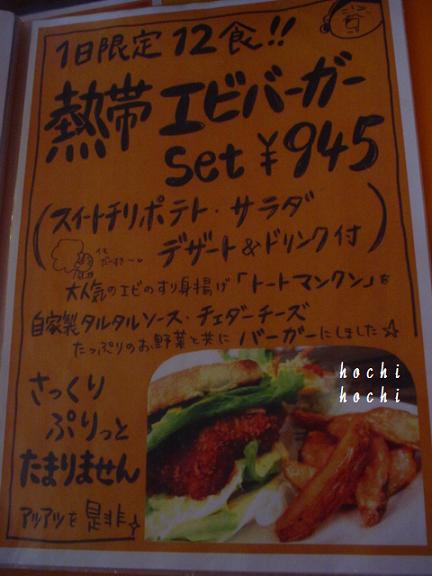 1日限定12食!!
熱帯エビバーガー
set ¥945
(スイートチリポテト・サラダ
デザート&ドリンク付)
大人気のエビのすり身揚げ「トートマンクン」を
自家製タルタルソース・チェダーチーズ
たっぷりのお野菜と共にバーガーにしました☆
さっくり
ぷりっと
たまりません
アツアツを是非☆
hochi
hochi